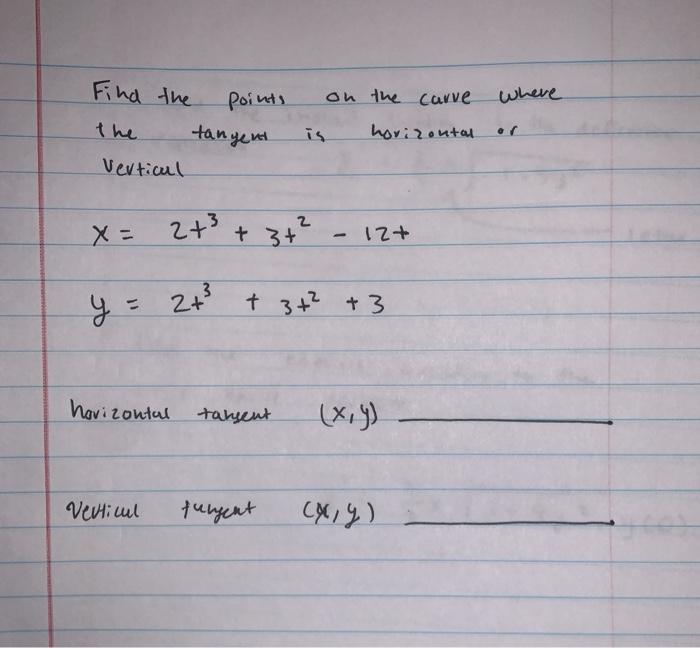 Find the points on the curve where
the tangent is horizontal or
vertical
x = 2t³ + 3t² - 12t
y = 2t³ + 3t² + 3
horizontal tangent (x,y)
Vertical tangent (x,y)